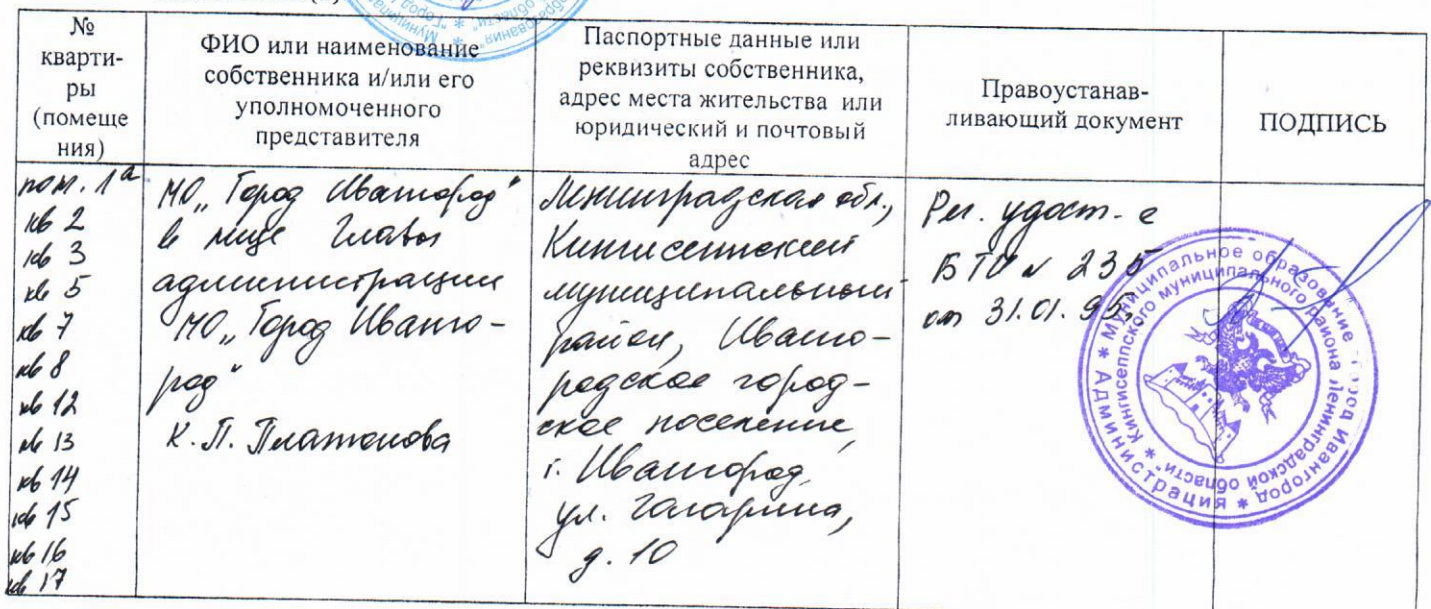 №
кварти-
ры
(помеще
ния)
ФИО или наименование
собственника и/или его
уполномоченного
представителя
Паспортные данные или
реквизиты собственника,
адрес места жительства или
юридический и почтовый
адрес
Правоустанав-
ливающий документ
ПОДПИСЬ
пом. 1а
кв 2
кв 3
кв 5
кв 7
кв 8
кв 12
кв 13
кв 14
кв 15
кв 16
кв 17
МО „Город Ивангород"
в лице Главы
администрации
МО „Город Иванго-
род"
К.П. Платонова
Ленинградская обл.,
Кингисеппский
муниципальный
район, Иванго-
родское город-
ское поселение,
г. Ивангород,
ул. Гагарина,
д. 10
Рег. удост-е
БТИ № 235
от 31.01.95,
* Муниципальное образование "Город Ивангород" * Администрация
* Кингисеппского муниципального района Ленинградской области"